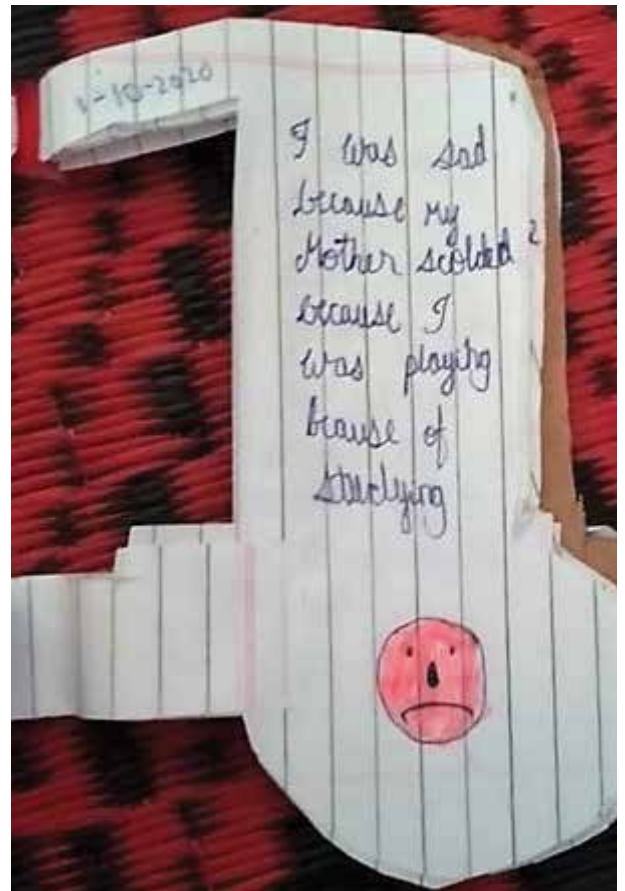 1-10-2020
I was sad
because my
Mother scolded
because I
was playing
beause of
studying